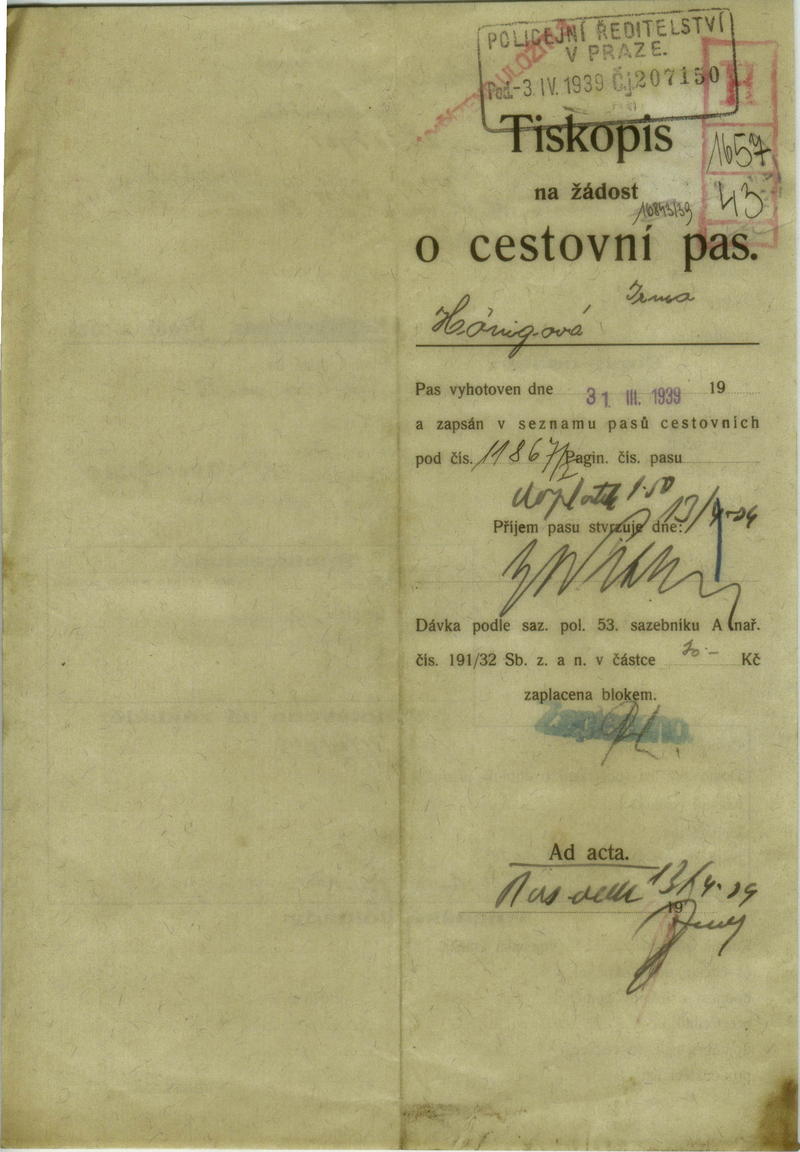 POLICEJNÍ ŘEDITELSTVÍ
V PRAZE.
Pod. -3. IV. 1939 Čj. 207150
H
1657
43
Tiskopis
na žádost
16843/39
o cestovní pas.
Irma
Hönigová
Pas vyhotoven dne 31. III. 1939 19
a zapsán v seznamu pasů cestovních
pod čís. 11867/ Pagin. čís. pasu
doplatek 1.50
Příjem pasu stvrzuje dne: 13/4-39
Dávka podle saz. pol. 53. sazebníku A nař.
čís. 191/32 Sb. z. a n. v částce Kč
zaplacena blokem.
Zaplaceno.
Ad acta.
13/4-39
19